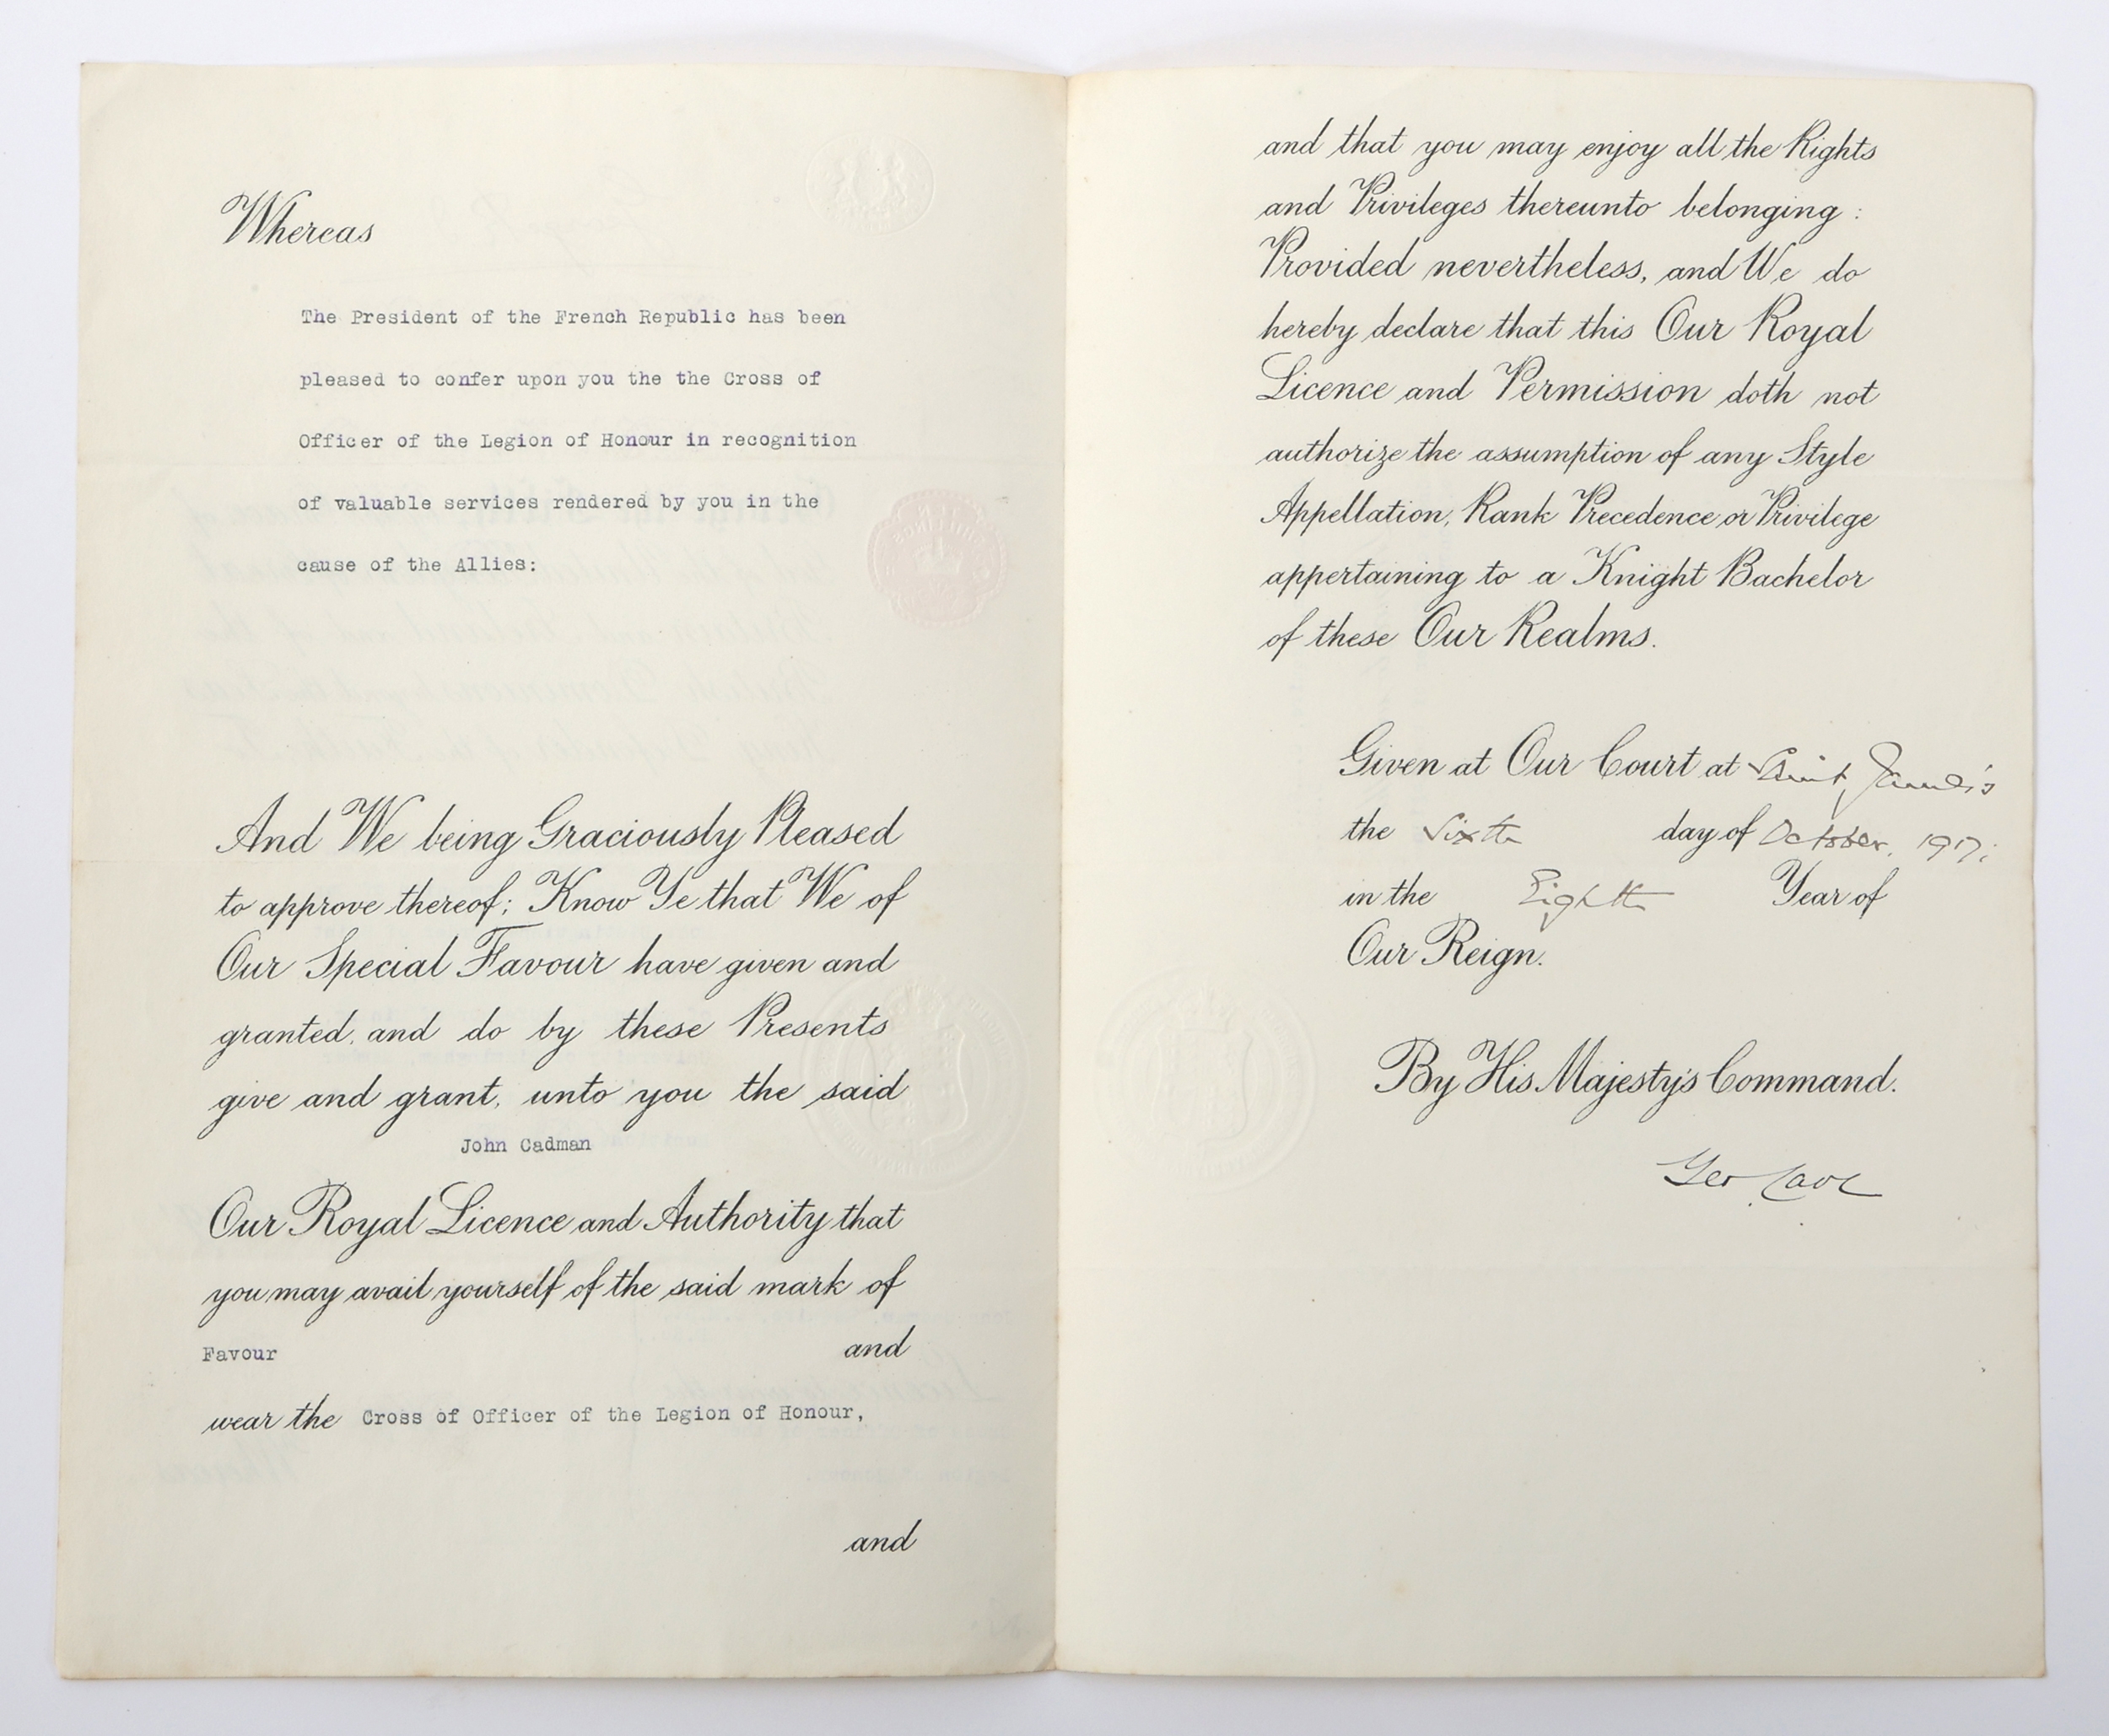 Whereas
The President of the French Republic has been
pleased to confer upon you the the Cross of
Officer of the Legion of Honour in recognition
of valuable services rendered by you in the
cause of the Allies:
And We being Graciously Pleased
to approve thereof; Know Ye that We of
Our Special Favour have given and
granted, and do by these Presents
give and grant, unto you the said
John Cadman
Our Royal Licence and Authority that
you may avail yourself of the said mark of
Favour and
wear the Cross of Officer of the Legion of Honour,
and
and that you may enjoy all the Rights
and Privileges thereunto belonging:
Provided nevertheless, and We do
hereby declare that this Our Royal
Licence and Permission doth not
authorize the assumption of any Style
Appellation, Rank Precedence or Privilege
appertaining to a Knight Bachelor
of these Our Realms.
Given at Our Court at Saint James's
the Sixth day of October, 1917;
in the Eighth Year of
Our Reign.
By His Majesty's Command.
Geo Cave